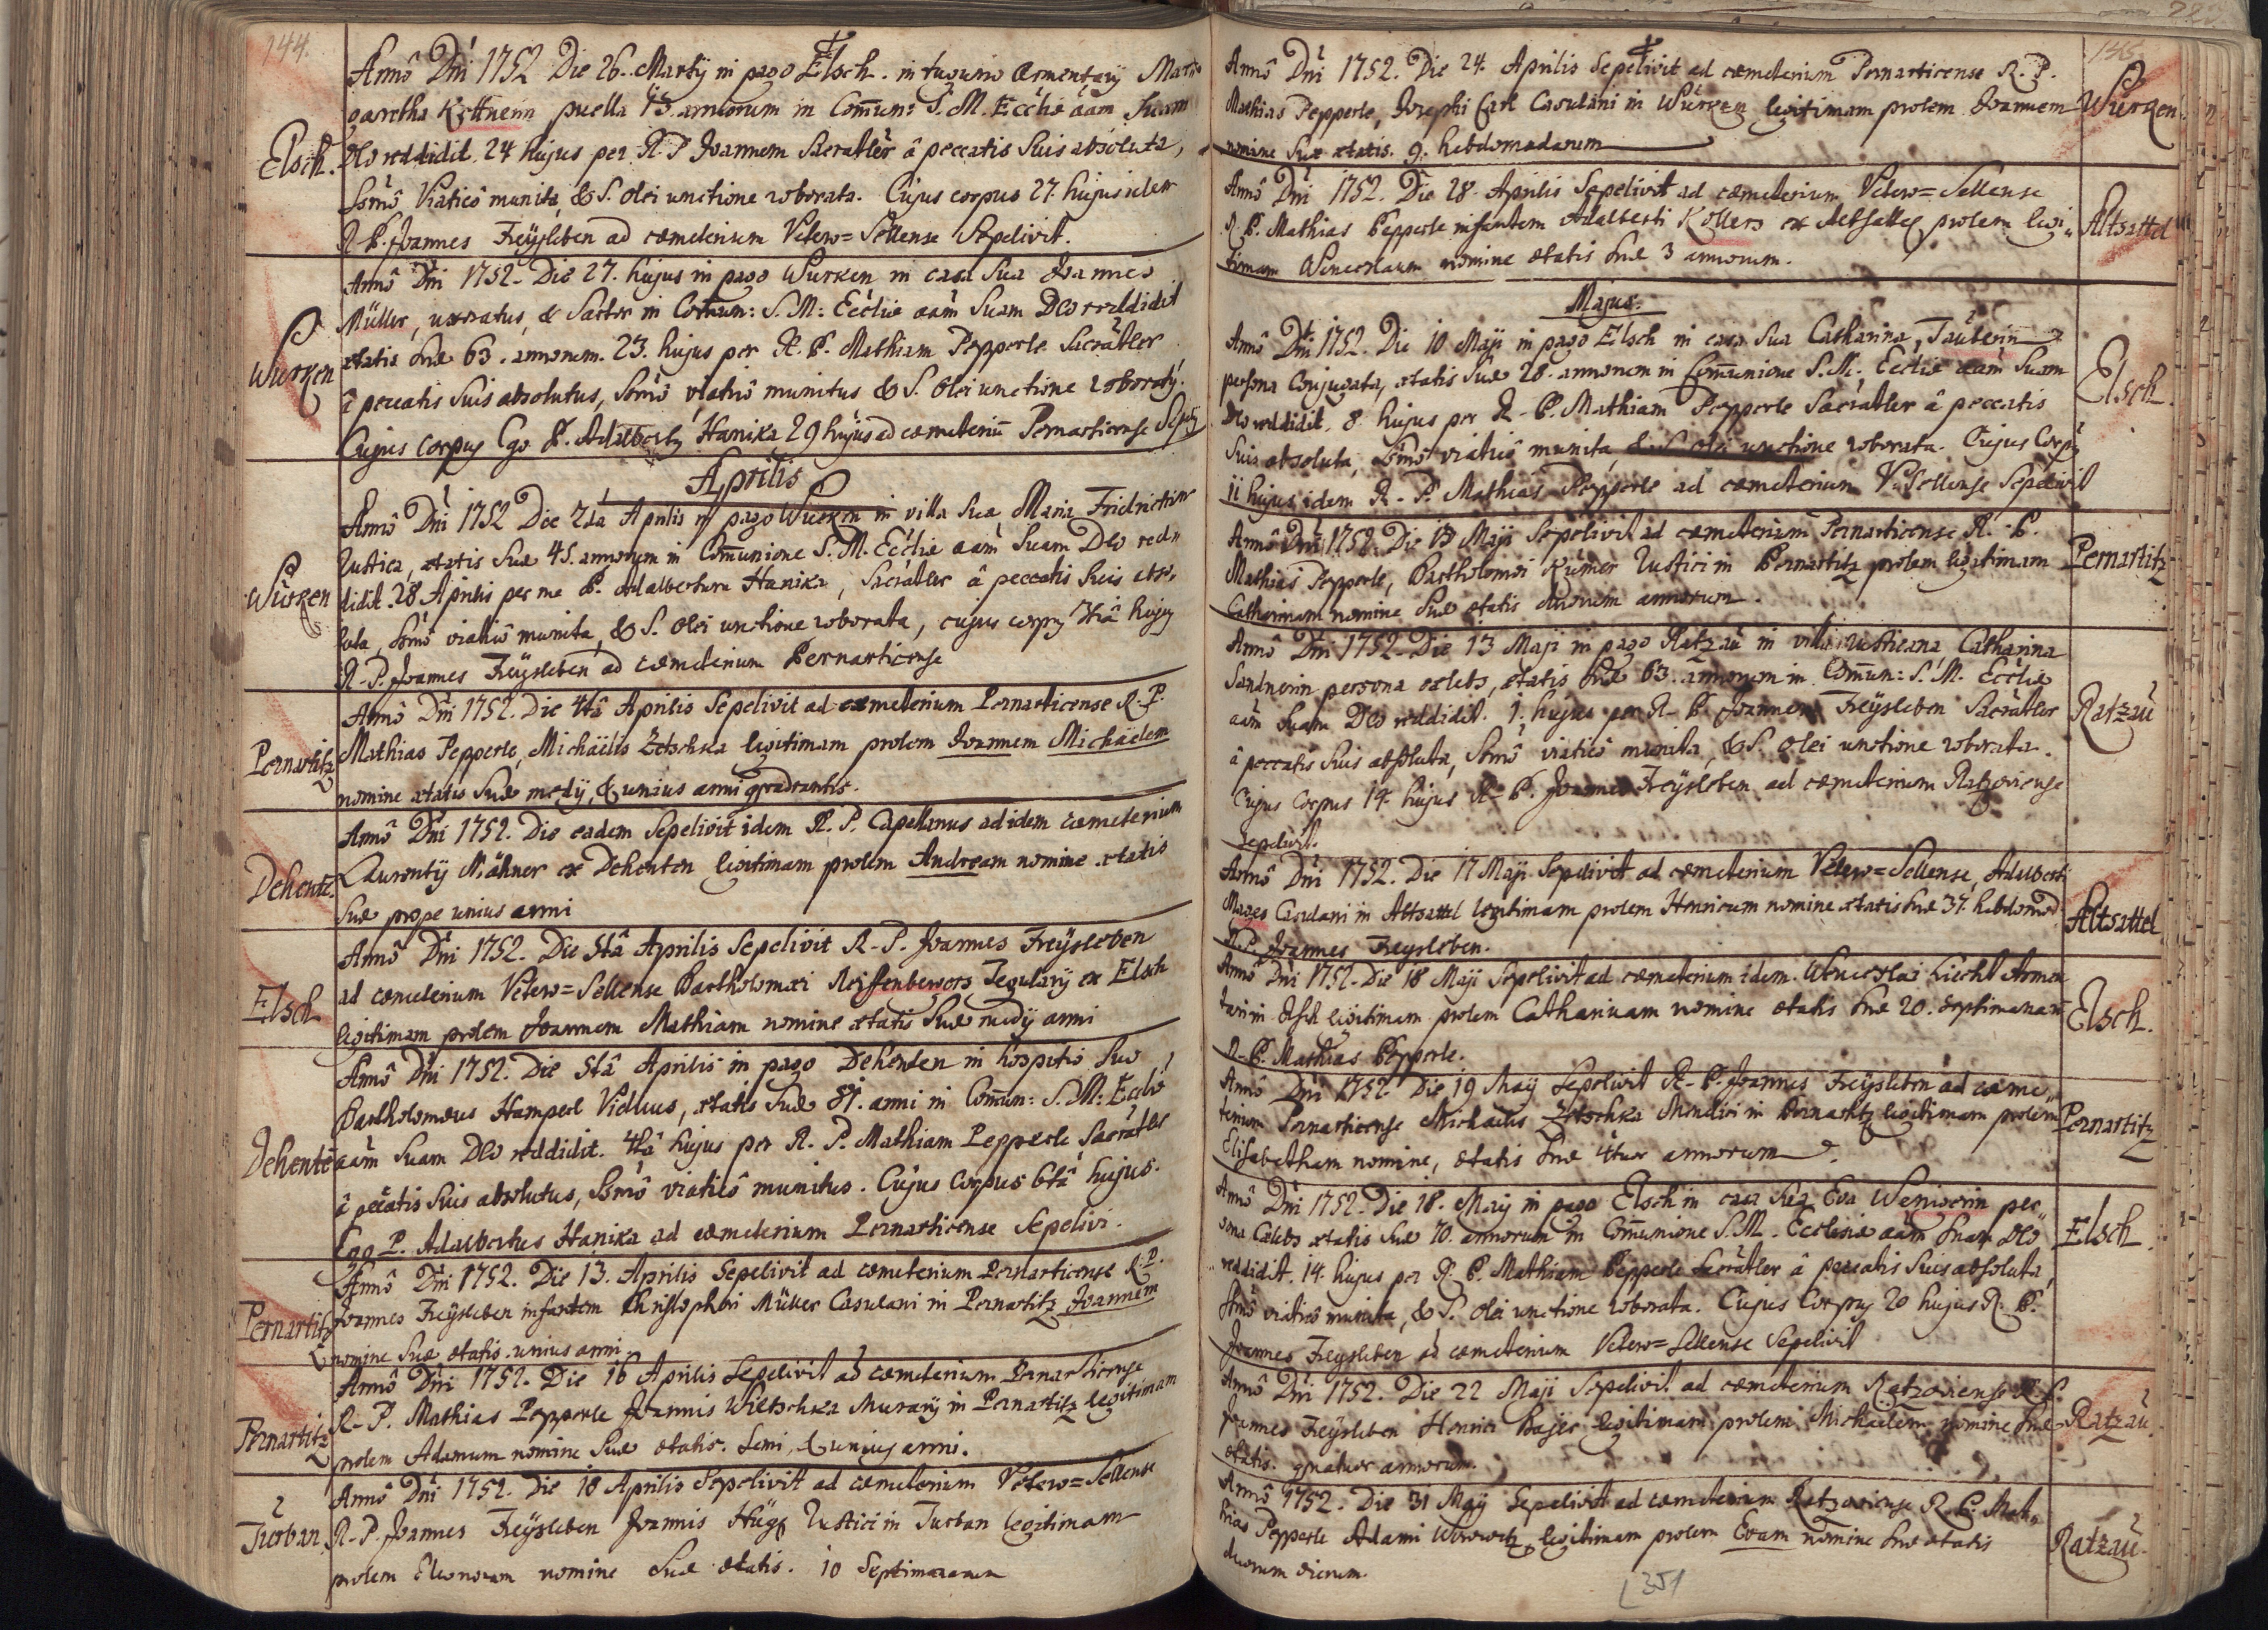 144.
Annô Dni 1752 Die 26. Martij in pago Elsch. in tugurio Armentarij Mar=
garetha Kottnerin puella 13. annorum in Commun: S. M. Ecclie aam Suam
Elsch.
Deo reddidit. 24 hujus per R. P. Joannem Sacratler â peccatis Suis absoluta,
Ssmô Viaticô munita, & S. olei unctione roborata. Cujus corpus 27. hujus idem
R. P. Joannes Freÿsleben ad cœmeterium Vetero=Sellense Sepelivit.
Annô Dni 1752. Die 27. hujus in pago Wurken in casa Sua Joannes
Müller, uxoratus, & Sartor in Commun: S. M: Ecclie aam Suam Deo reddidit
Wurken
ætatis Suæ 63. annorum. 23. hujus per R. P. Mathiam Pepperle Sacratler
â peccatis Suis absolutus, Ssmô viaticô munitus & S. olei unctione roboratg.
Cujus corpus Ego P. Adalbertg Hanika 29 hujus ad cœmeteriu Pernarticense
Aprilis
Annô Dni 1752 Die 2da Aprilis in pago Wurken in villa Sua Maria
Rustica, ætatis Suæ 45. annorum in Communione S. M. Ecclie aam Suam Deo red
Würken
didit. 28 Aprilis per me P. Adalbertum Hanika, Sacratler â peccatis Suis abso,
luta, Ssmô viaticô munita, & S. olei unctione roborata, cujus corpg hujg
R. P. Joannes Freÿsleben ad cœmeterium Pernarticense
Annô Dni 1752. Die 4tâ Aprilis Sepelivit ad cœmeterium Pernarticense R. P.
Pernartitz
Mathias Pepperle, Michaëlis Zetschka legitimam prolem Joannem Michaëlem
nomine ætatis Suæ medij, & unius anni quadrantis.
Annô Dni 1752. Die eadem Sepelivit idem R. P. Capellanus ad idem cœmeterium
Dehente.
Laurentij Mähner ex Dehenten legitimam prolem Andream nomine ætatis
Suæ prope unius anni
Annô Dni 1752. Die 5tâ Aprilis Sepelivit R. P. Joannes Freÿsleben
Elsch
ad cœmeterium Vetero=Sellense Bartholomæi Reissenbergers Tegularij ex Elsch
legitimam prolem Joannem Mathiam nomine ætatis Suæ medij anni
Annô Dni 1752. Die 5tâ Aprilis in pago Dehenten in hospitio Suo
Bartholomæus Hamperl Viduus, ætatis Suæ 81. anni in Commun: S. M: Ecclie
Dehente
aam Suam Deo reddidit. 4tâ hujus per R. P. Mathiam Pepperle Sacratler
â peccatis Suis absolutus, Ssmô viaticô munitus. Cujus Corpus 6tâ hujus.
Ego P. Adalbertus Hanika ad cœmeterium Pernarticense Sepelivi.
Annô Dni 1752. Die 13. Aprilis Sepelivit ad cœmeterium Pernarticense R. P.
Pernartitz
Joannes Freÿsleben infantem Christophori Müller Casulani in Pernartitz Joannem
nomine Suæ ætatis unius anni
Annô Dni 1752. Die 16 Aprilis Sepelivit ad cœmeterium Pernarticense
Pernartitz
R. P. Mathias Pepperle Joannis Wiltschka Murarij in Pernartitz legitimam
prolem Adamum nomine Suæ ætatis. Semi, & unius anni.
Annô Dni 1752. Die 18 Aprilis Sepelivit ad cœmeterium Vetero=Sellense
Turban
R. P. Joannes Freÿsleben Joannis Hüge Rustici in Turban legitimam
prolem Eleonoram nomine Suæ ætatis. 10 Septimanarum
145.
Annô Dni 1752. Die 24. Aprilis Sepelivit ad cœmeterium Pernarticense R. P.
Mathias Pepperle, Josephi Carl Casulani in Würken legitimam prolem Joannem
Würken
nomine Suæ ætatis. 9. hebdomadarum
Annô Dni 1752. Die 28. Aprilis Sepelivit ad cœmeterium Vetero=Sellense
R. P. Mathias Pepperle infantem Adalberti Kollers ex Altsattel prolem legi=
Altsattel
timam Wenceslaum nomine ætatis Suæ 3 annorum.
Majus.
Annô Dni 1752. Die 10 Maji in pago Elsch in casa Sua Catharina Tauberin
persona Conjugata, ætatis Suæ 28. annorum in Communione S. M. Ecclie aam Suam
Elsch.
Deo reddidit, 8. hujus per R. P. Mathiam Pepperle Sacratler â peccatis
Suis absoluta, Ssmô viaticô munita, & S. olei unctione roborata. Cujus Corpg
11 hujus idem R. P. Mathias Pepperle ad cœmeterium V. Sellense Sepelivit
Annô Dni 1752. Die 13 Maji Sepelivit ad cœmeterium Pernarticense R. P.
Pernartitz
Mathias Pepperle, Bartholomæi Kumer Rustici in Pernartitz prolem legitimam
Catharinam nomine Suæ ætatis duorum annorum.
Annô Dni 1752. Die 13 Maji in pago Ratzau in villa rusticana Catharina
Sandnerin persona cælebs, ætatis Suæ 63. annorum in Commun: S. M. Ecclie
Ratzau
aam Suam Deo reddidit. 1. hujus per R. P. Joannem Freÿsleben Sacratler
â peccatis Suis absoluta, Ssmô viaticô munita, & S. olei unctione roborata.
Cujus Corpus 14. hujus R. P. Joannes Freÿsleben ad cœmeterium Ratzoviense
Sepelivit.
Annô Dni 1752. Die 17 Maji Sepelivit ad cœmeterium Vetero=Sellense, Adalberti
Mages Casulani in Altsattel legitimam prolem Henricum nomine ætatis Suæ 37. hebdomad
Altsattel
R. P. Joannes Freysleben.
Annô Dni 1752. Die 18 Maji Sepelivit ad cœmeterium idem. Wenceslai Liecht Armen
tarij in Elsch legitimam prolem Catharinam nomine ætatis Suæ 20. Septimanarum
Elsch.
R. P. Mathias Pepperle.
Annô Dni 1752. Die 19 Maij Sepelivit R. P. Joannes Freÿsleben ad cœme=
terium Pernarticense Michaelis Zetschka Mendici in Pernartitz legitimam prolem
Pernartitz
Elisabetham nomine, ætatis Suæ 4tuor annorum
Annô Dni 1752. Die 18. Maij in pago Elsch in casa Sua Eva Wenigerin per=
sona Cælebs ætatis Suæ 70. annorum in Communione S. M. Ecclesiæ aam Suam Deo
Elsch.
reddidit. 14. hujus per R. P. Mathiam Pepperle Sacratler â peccatis Suis absoluta,
Ssmô viaticô munita, & S. olei unctione roborata. Cujus Corpg 20 hujus R. P.
Joannes Freysleben ad cœmeterium Vetero=Sellense Sepelivit
Annô Dni 1752. Die 22 Maji Sepelivit ad cœmeterium Ratzoviense R. P.
Joannes Freÿsleben Henrici Bayer legitimam prolem Michaëlem nomine Suæ
Ratzau
ætatis. quatuor annorum.
Annô 1752. Die 31 Maij Sepelivit ad cœmeterium Ratzoviense R. P. Mat=
hias Pepperle Adami legitimam prolem Evam nomine Suæ ætatis
Ratzau
duorum dierum.
351